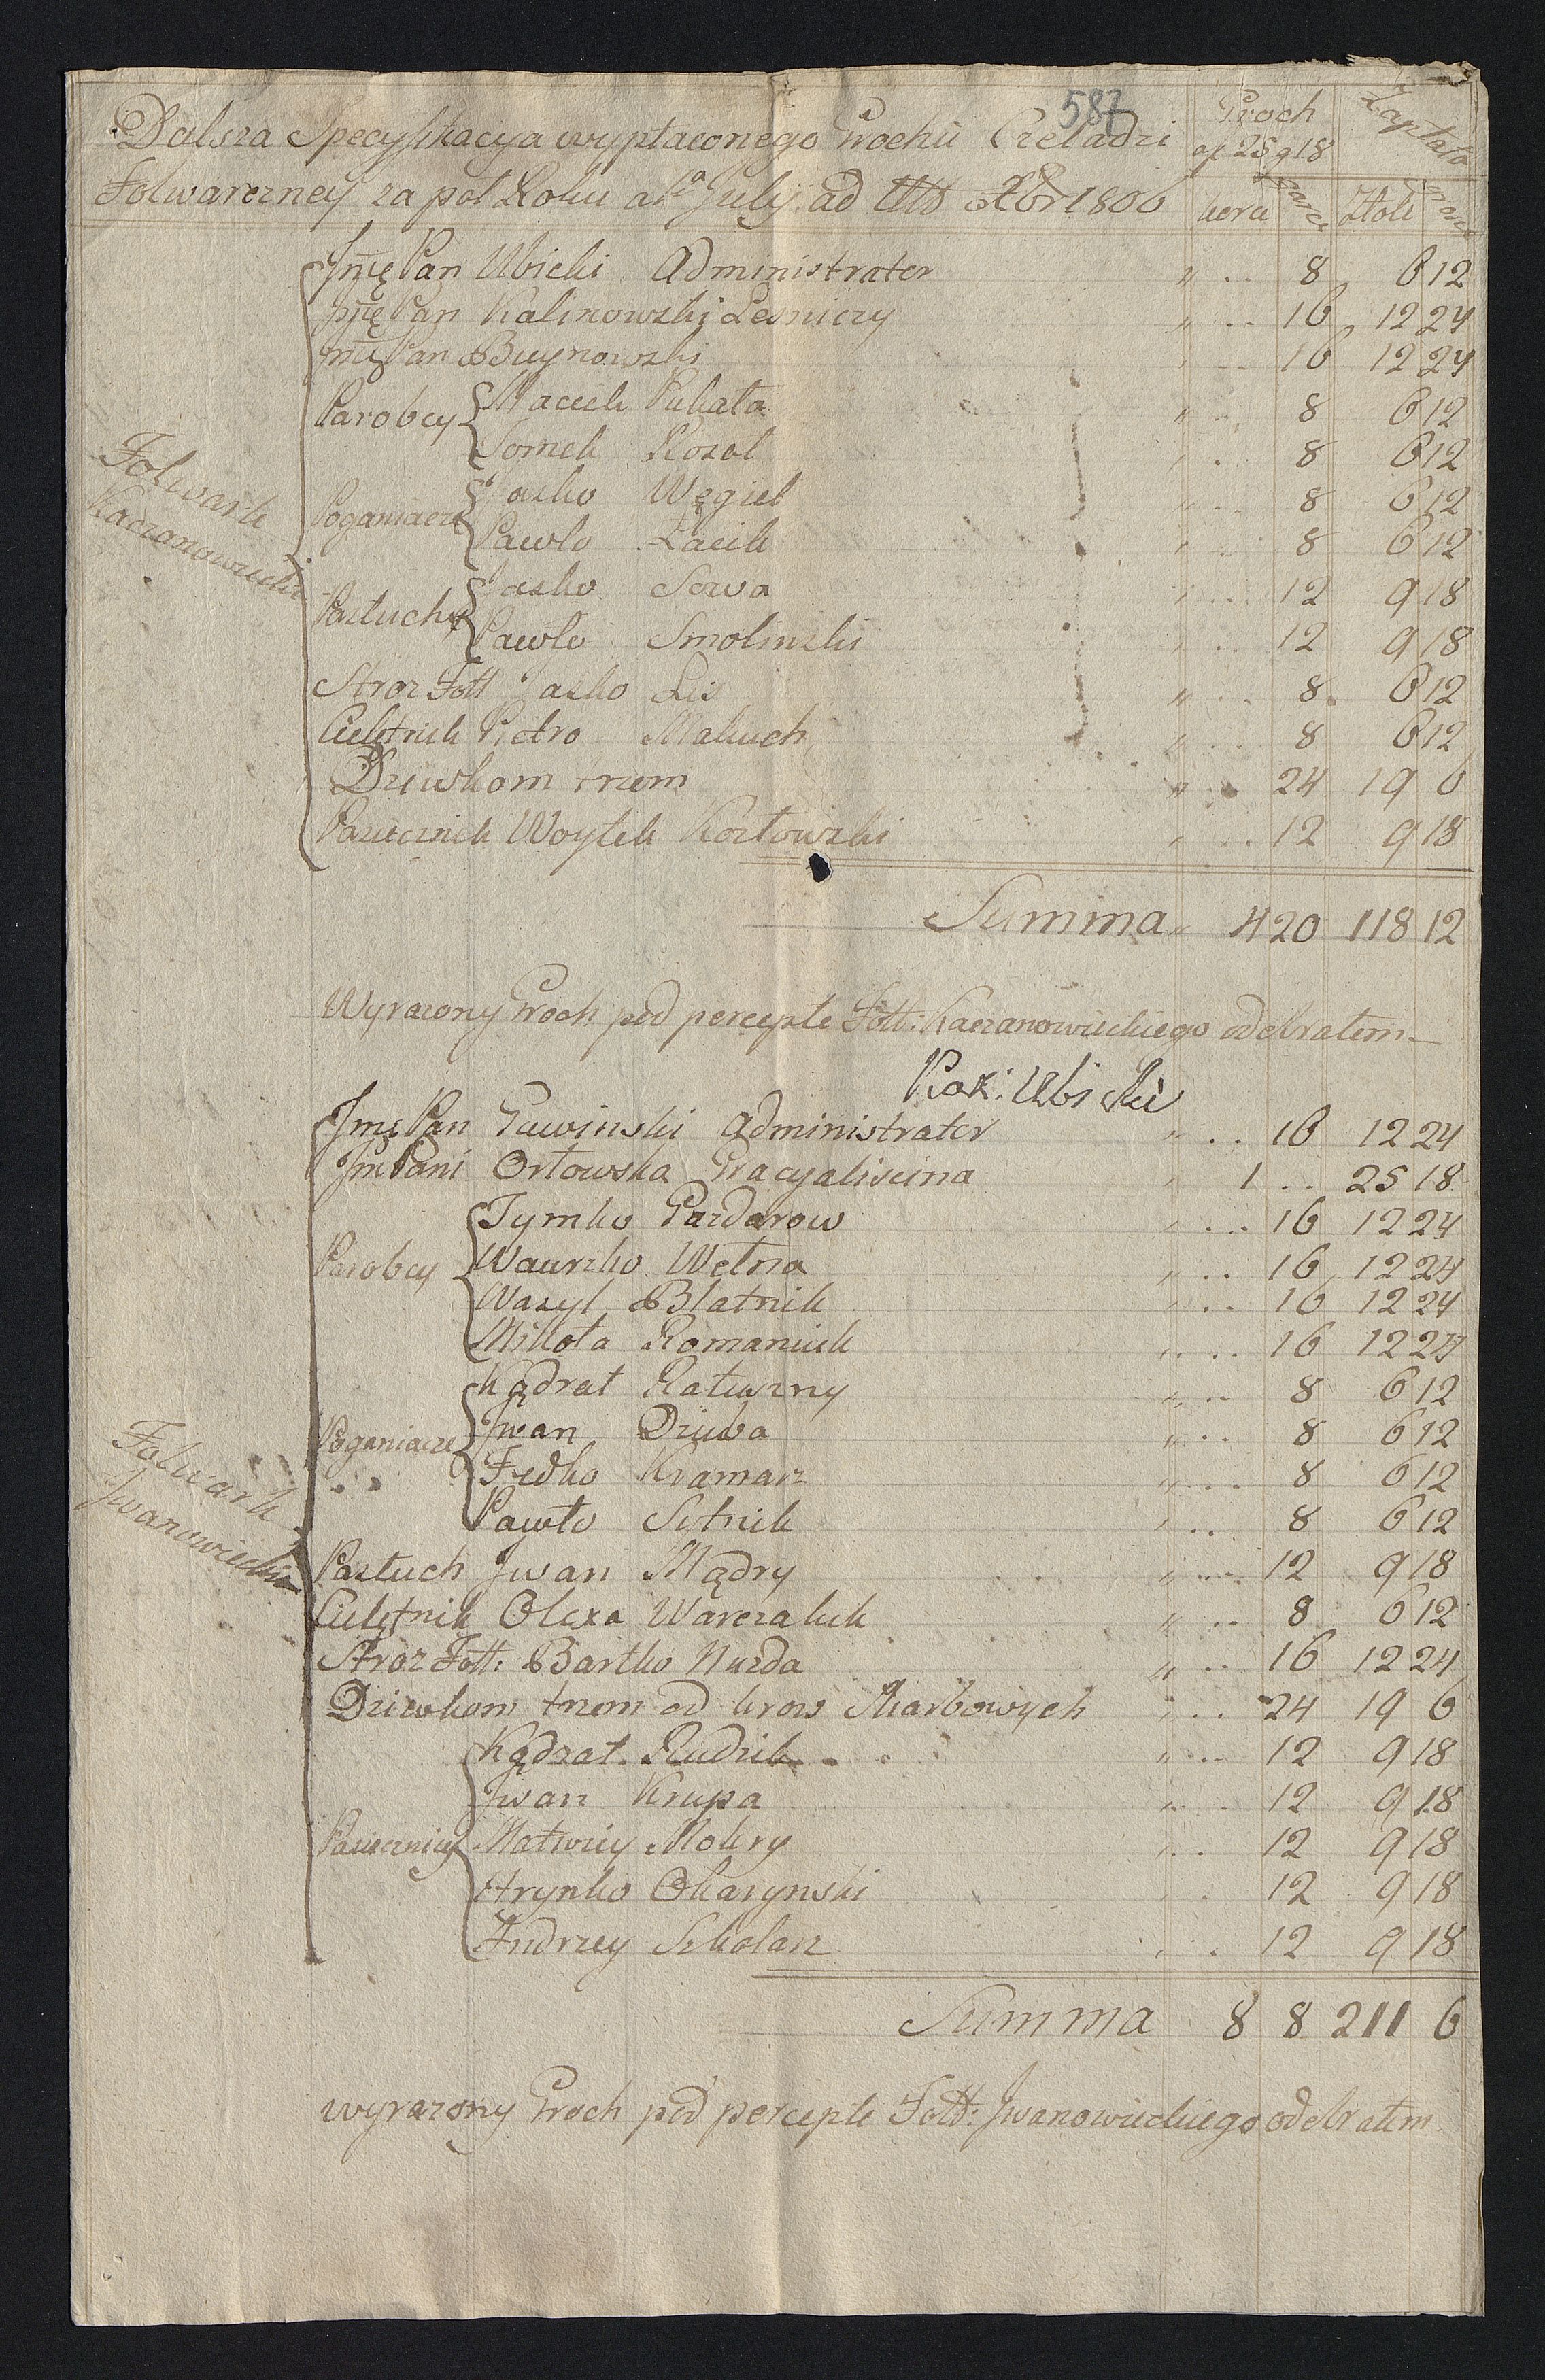 587
Dalsza Specyfikacya wypłaconego Grochu Czeladzi
Folwarczney za poł Roku a 1ª July ad Ult Xbr 1806
Groch
af 25 g 18
Zapłata
korce garce Złote grosze
Folwark
Kaczanowiecki
Jmę Pan Ubicki Administrator " .. 8 6 12
Jmę Pan Kalinowski Lesniczy " .. 16 12 24
Jmę Pan Buynowski " .. 16 12 24
Parobcy Maciek Pukała " .. 8 6 12
Somek Kozal " .. 8 6 12
Poganiacze Jasko Węgiel " .. 8 6 12
Pawlo Łacik " .. 8 6 12
Pastuchy Jasko Sowa " .. 12 9 18
Pawlo Smolinski " .. 12 9 18
Stroz Foll Jasko Lis " .. 8 6 12
Cielętnik Pietro Makuch " .. 8 6 12
Dziwkom trzem " .. 24 19 6
Pasiecznik Woytek Kozłowski " .. 12 9 18
Summa " 4 20 118 12
Wyrazony Groch pod percepte Foll: Kaczanowieckiego odebrałem
Kaz: Ubicki
Folwark
Jwanowiecki
Jmę Pan Gawinski Administrator " .. 16 12 24
Jm Pani Orłowska Gracyaliscina " 1 .. 25 18
Parobcy Tymko Pazdarow " .. 16 12 24
Wawrzko Wełna " .. 16 12 24
Wasyl Blatnik " .. 16 12 24
Mikoła Romaniuk " .. 16 12 24
Poganiacze Kądrat Ratuszny " .. 8 6 12
Jwan Dziuba " .. 8 6 12
Fedko Kramarz " .. 8 6 12
Pawło Sitnik " .. 8 6 12
Pastuch Jwan Mądry " .. 12 9 18
Cielętnik Olexa Warczaluk " .. 8 6 12
Stroz Foll: Bartko Nuzda " .. 16 12 24
Dziewkom trzem od krow Skarbowych " .. 24 19 6
Pasiecznicy Kądrat Rudzik " .. 12 9 18
Jwan Krupa " .. 12 9 18
Matwiey Mokry " .. 12 9 18
Hrynko Okarynski " .. 12 9 18
Andrzey Szkolarz " .. 12 9 18
Summa 8 8 211 6
wyrazony Groch pod percepte Foll: Jwanowieckiego odebrałem